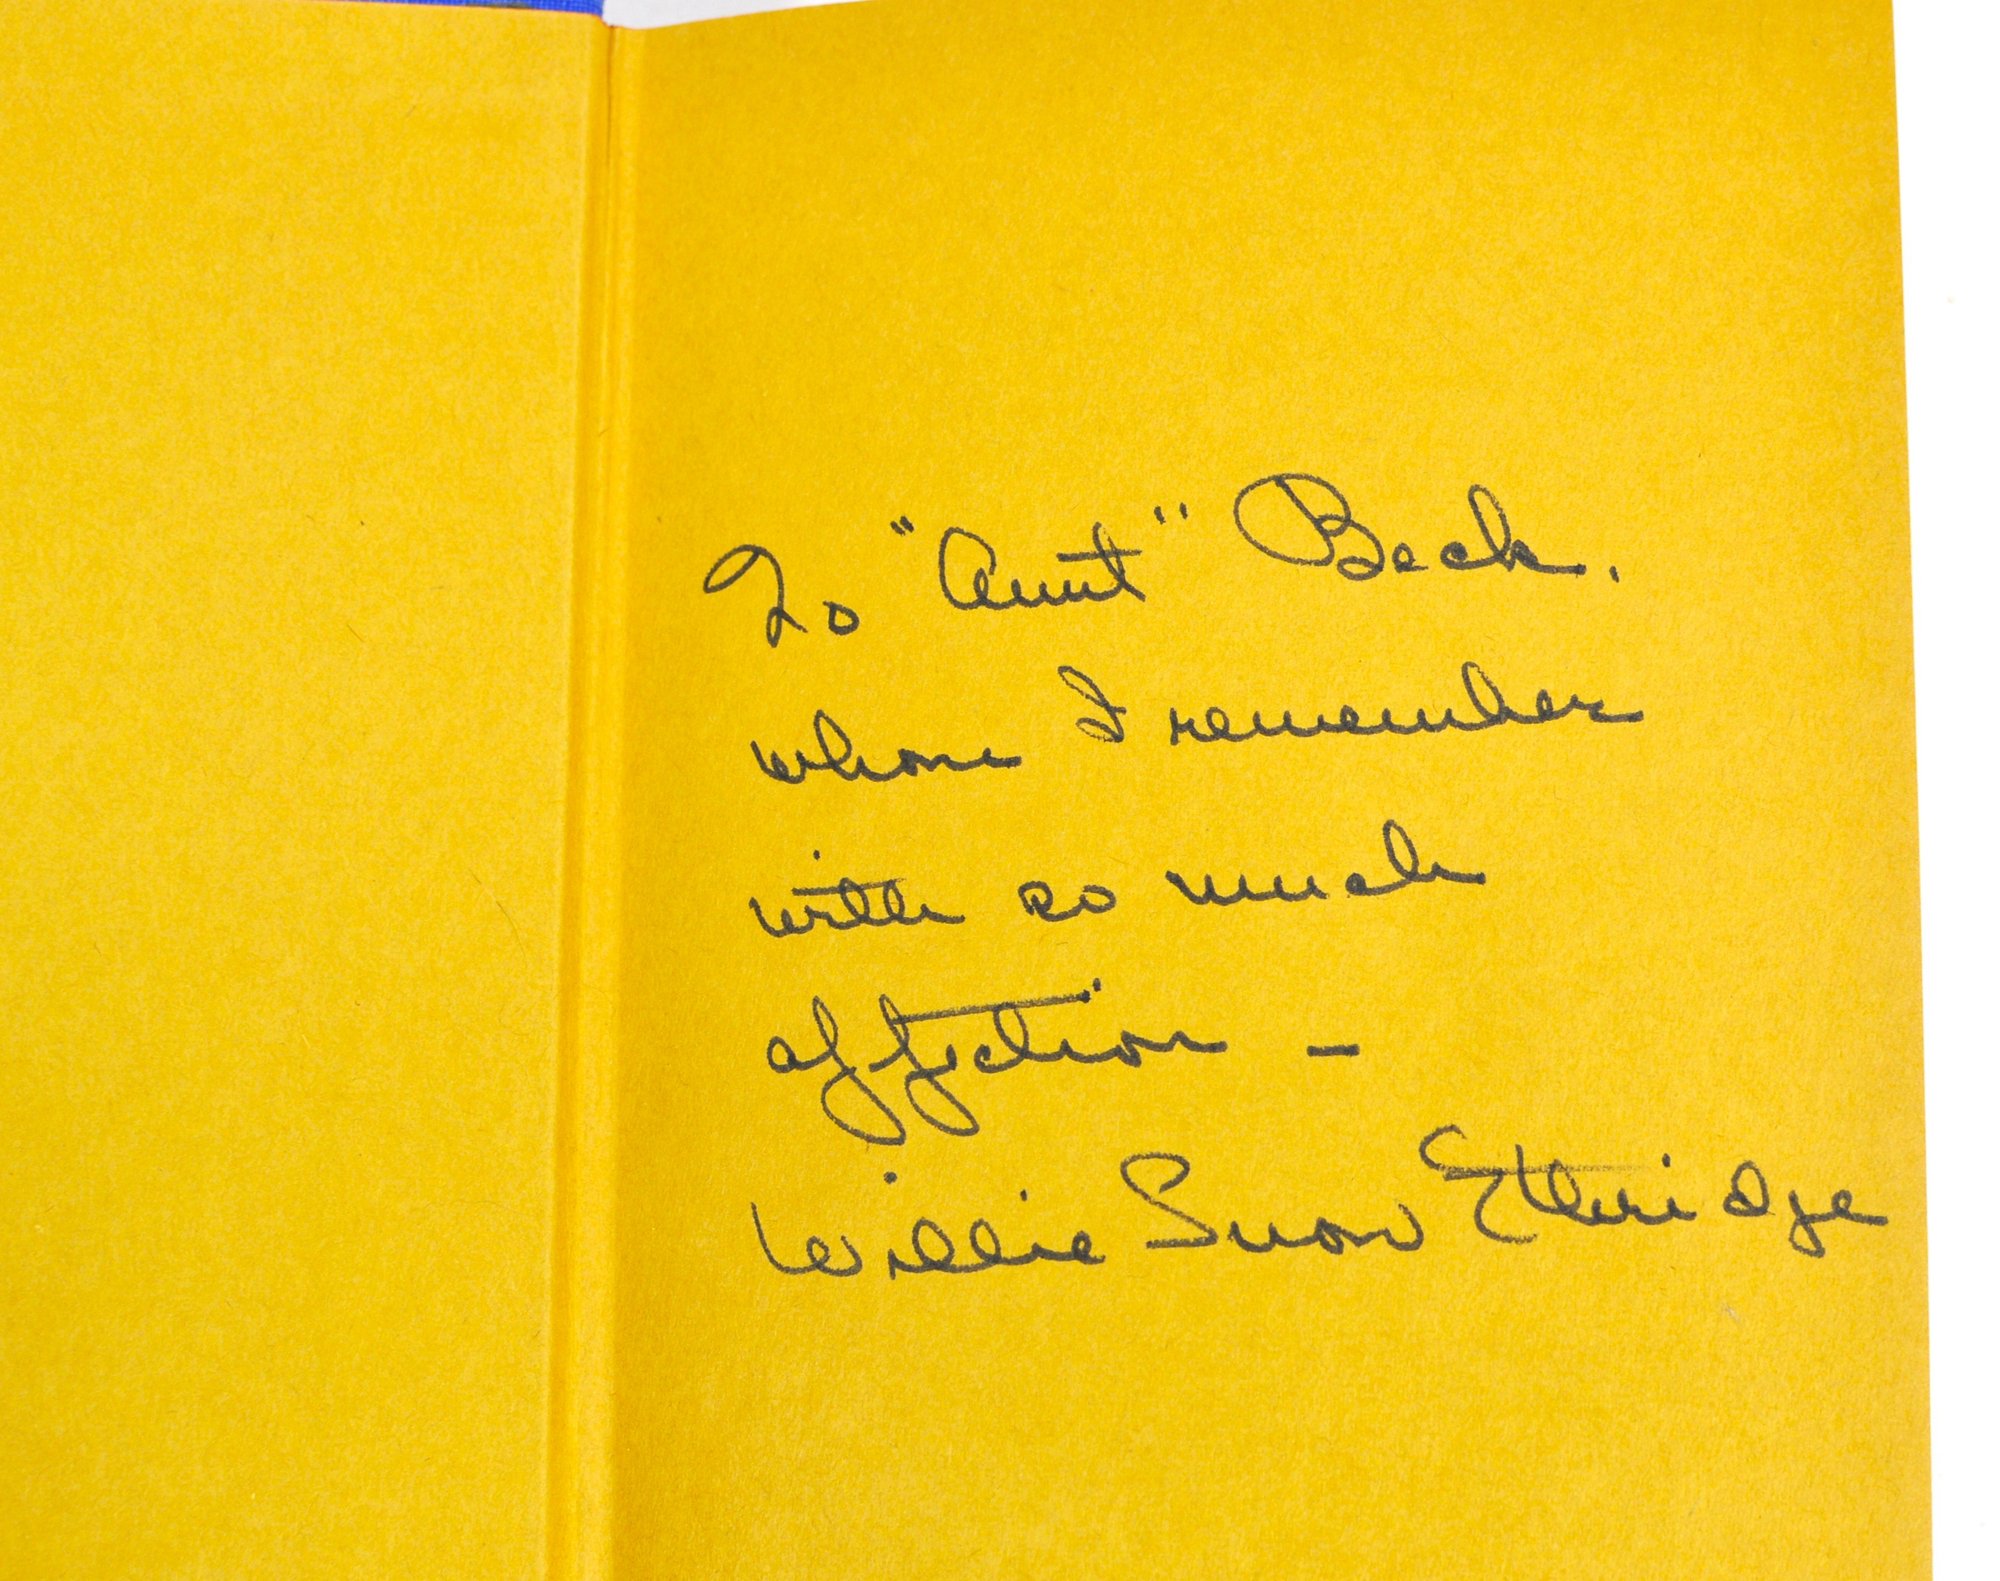 To "Aunt" Beck,
whom I remember
with so much
affection –
Willie Snow Ethridge